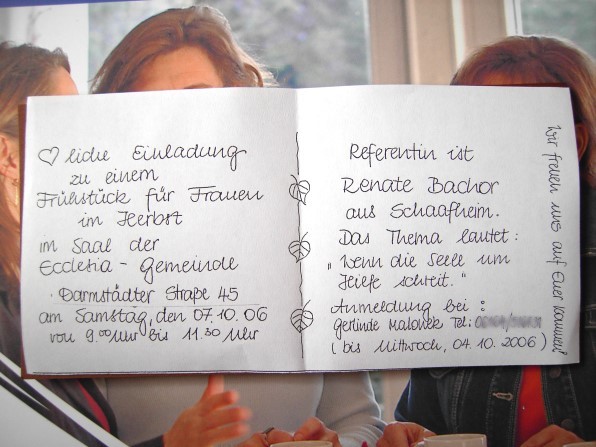 ♡ liche Einladung
zu einem
Frühstück für Frauen
im Herbst
im Saal der
Ecclesia - Gemeinde
Darmstädter Straße 45
am Samstag, den 07.10.06
von 9.00 Uhr bis 11.30 Uhr
Referentin ist
Renate Bachor
aus Schaafheim.
Das Thema lautet:
„Wenn die Seele um
Hilfe schreit."
Anmeldung bei:
Gerlinde Tel:
(bis Mittwoch, 04.10.2006)
Wir freuen uns auf Euer kommen!